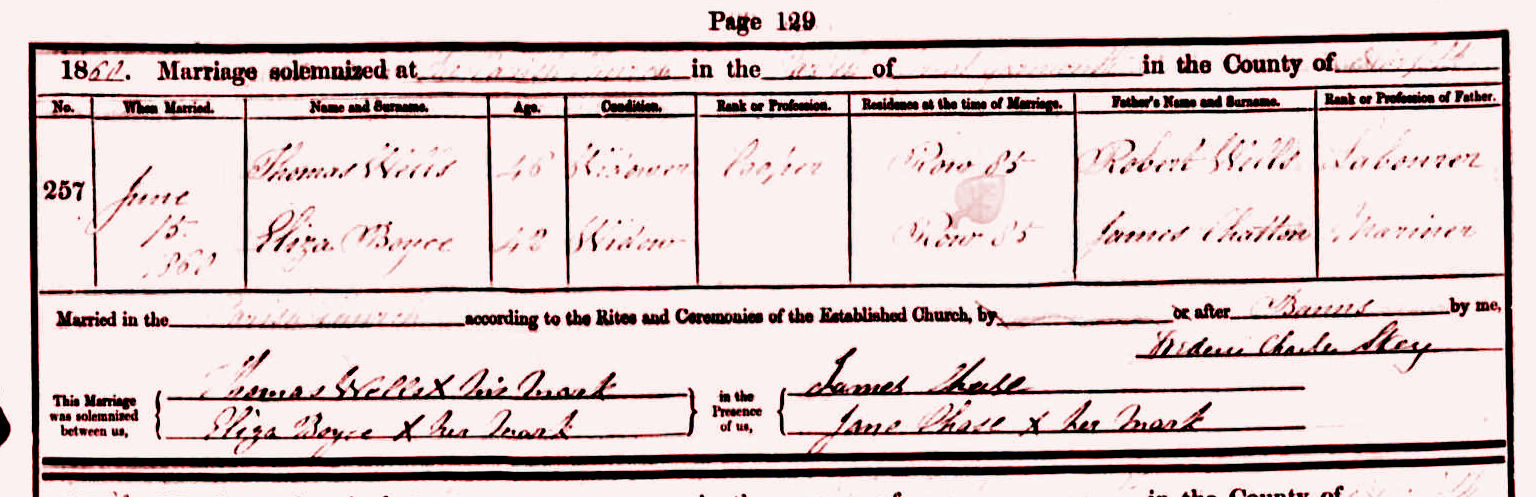 Page 129
1860. Marriage solemnized at in the of in the County of
No. When Married. Name and Surname. Age. Condition. Rank or Profession. Residence at the time of Marriage. Father's Name and Surname. Rank or Profession of Father.
257 June 15 1860 Thomas Wells 46 Widower Cooper Row 85 Robert Wells Labourer
Eliza Boyce 42 Widow Row 85 James Chatton Mariner
Married in the Parish Church according to the Rites and Ceremonies of the Established Church, by or after Banns by me,
Charles Skey
This Marriage was solemnized between us, Thomas Wells X his mark in the Presence of us, James Chase
Eliza Boyce X her mark Jane Chase X her mark
in the of in the County of